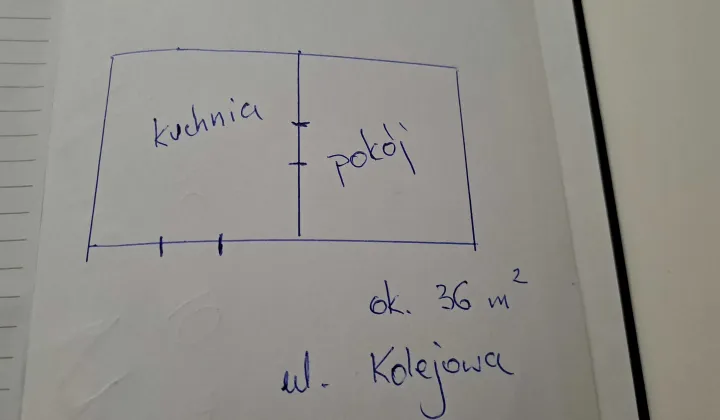 kuchnia
pokój
ok. 36 m²
ul. Kolejowa